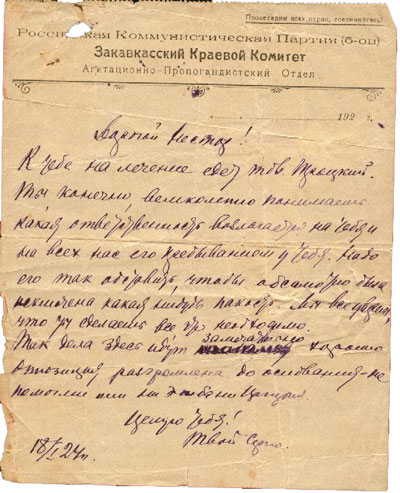 Пролетарии всех стран, соединяйтесь!
Российская Коммунистическая Партия (б-ов)
Закавказский Краевой Комитет
Агитационно-Пропогандистский Отдел
192 г.
Дорогой Нестор!
К тебе на лечение едет тов. Троцкий.
Ты конечно, великолепно понимаешь
какая ответственность возлагается на тебя и
на всех нас его пребыванием у тебя. Надо
его так обставить, чтобы абсолютно была
исключена какая нибудь пакость. Мы все уверены,
что ты сделаешь все что необходимо.
Так дела здесь идут замечательно хорошо
Оппозиция разгромлена до основания-не
помогли ни
Целую тебя!
Твой Серго.
18/I 24 г.